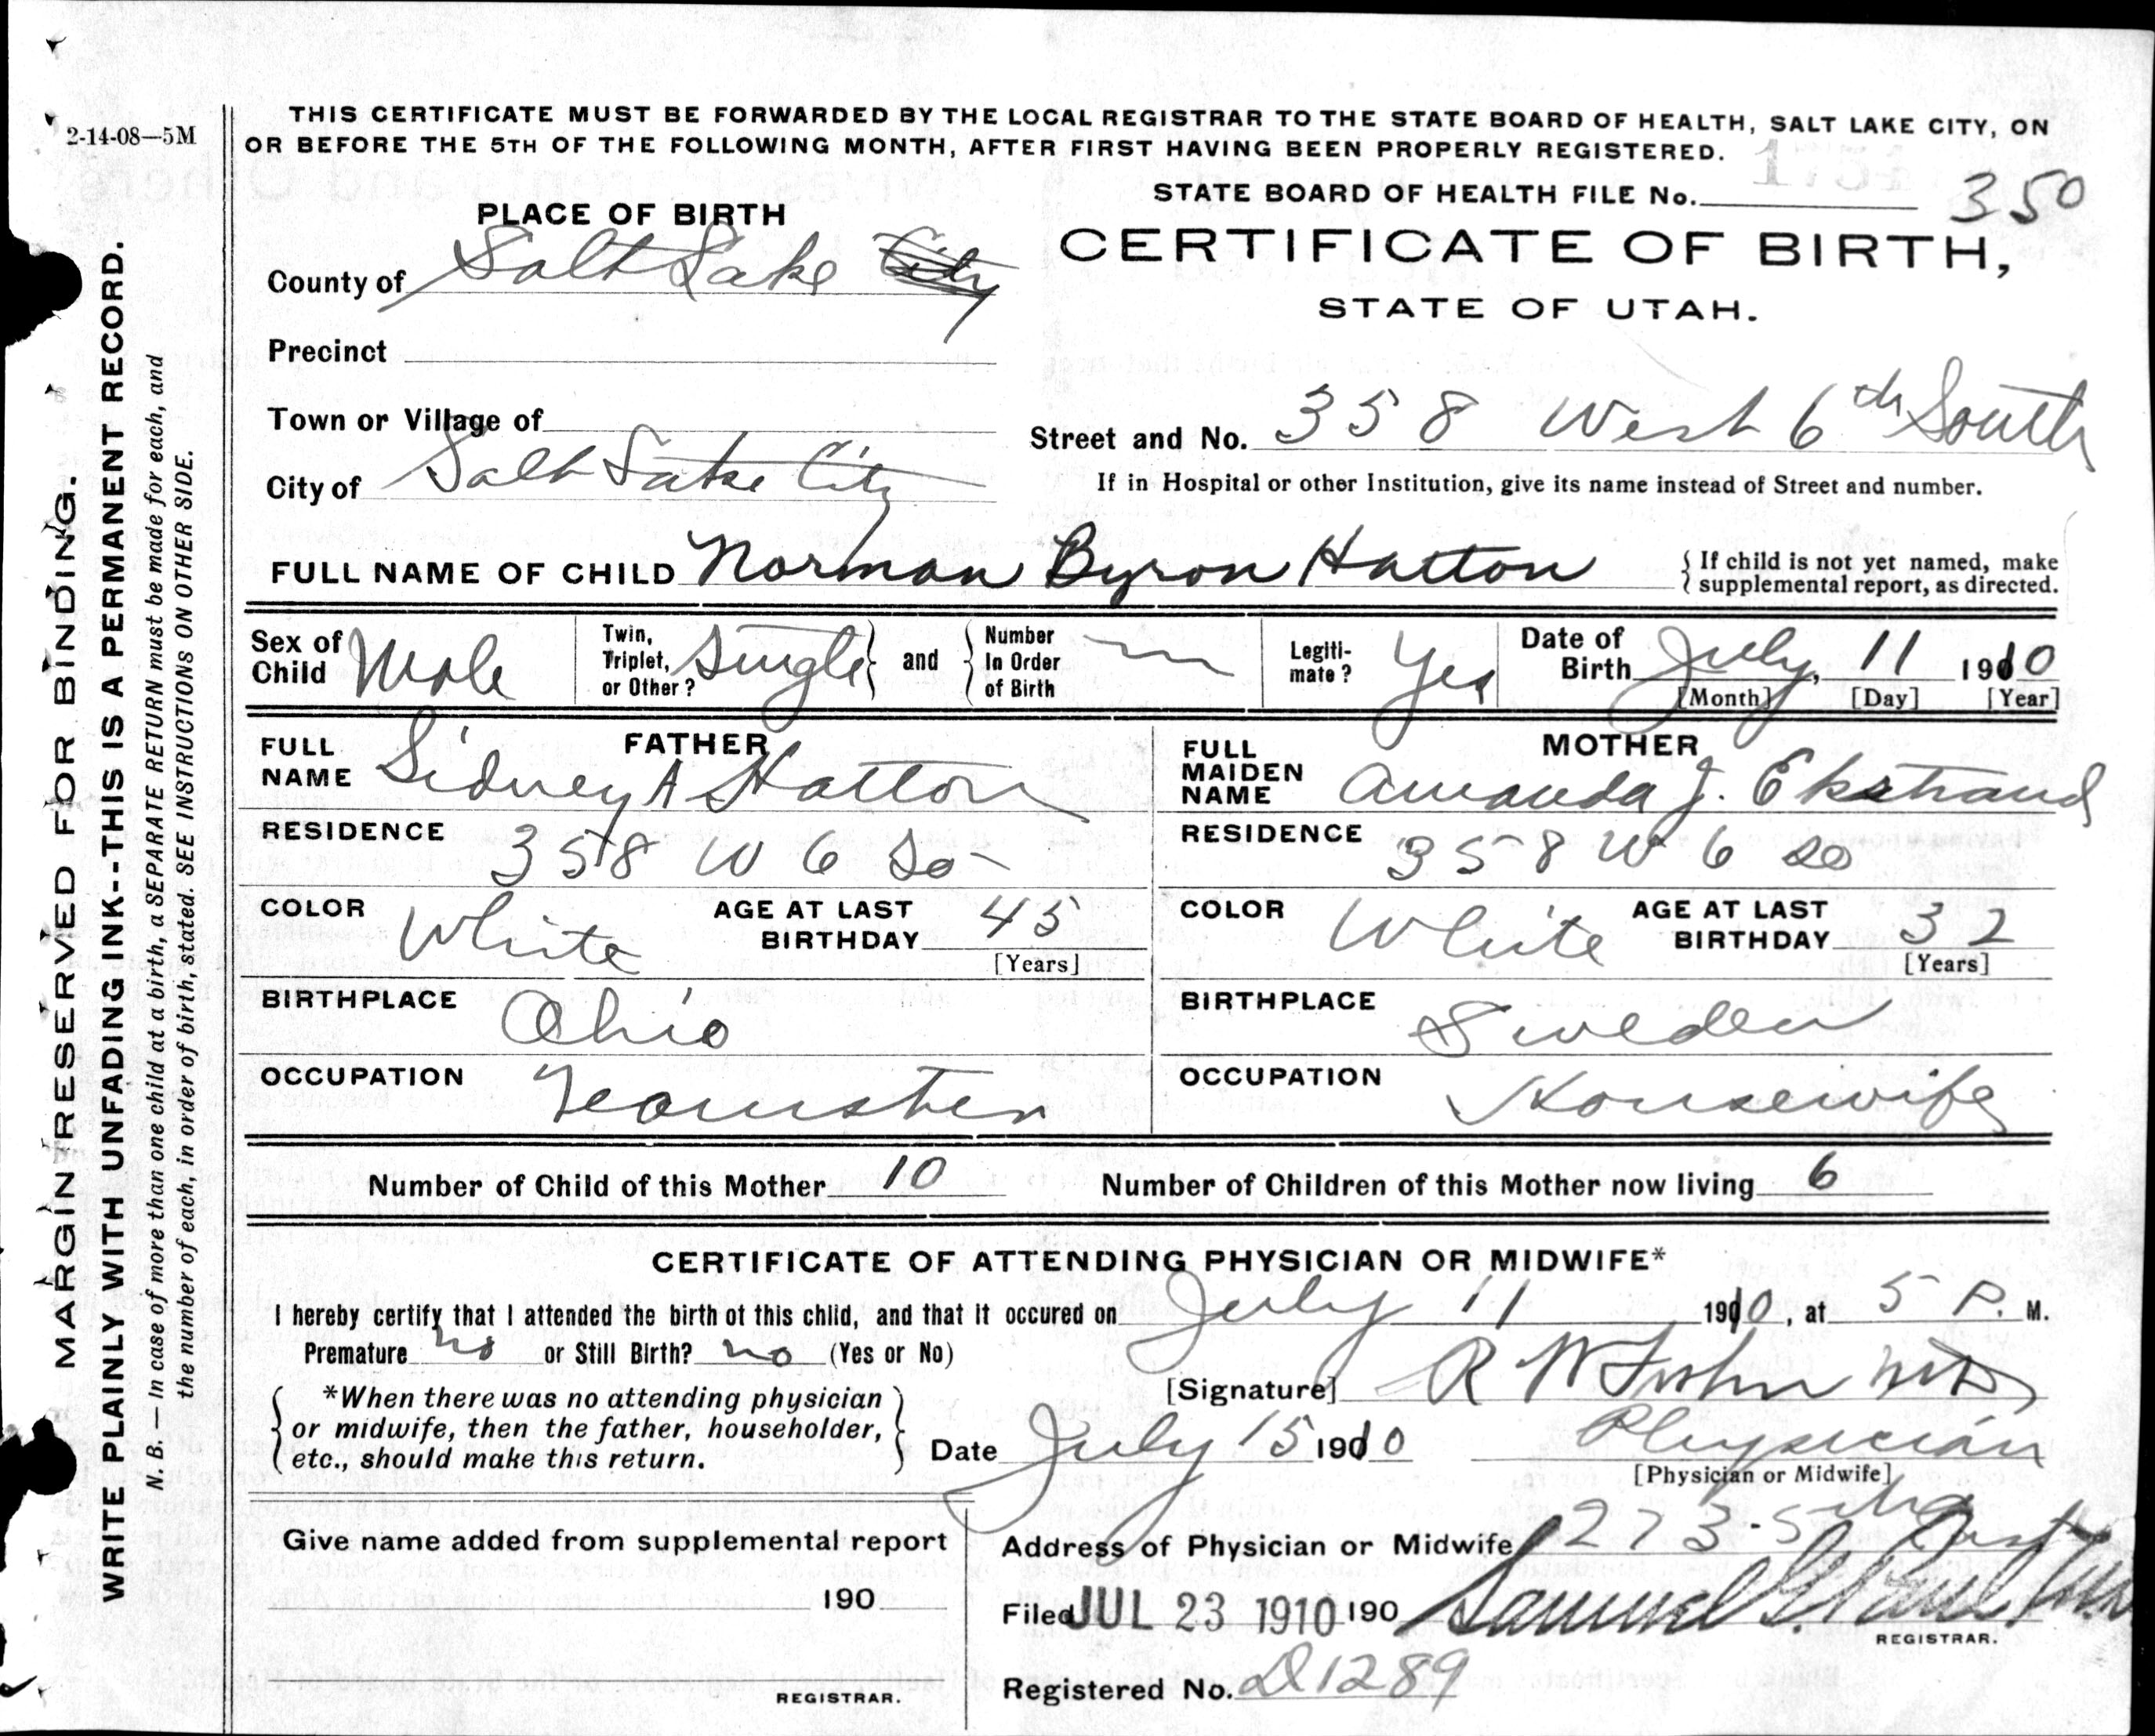 THIS CERTIFICATE MUST BE FORWARDED BY THE LOCAL REGISTRAR TO THE STATE BOARD OF HEALTH, SALT LAKE CITY, ON
OR BEFORE THE 5TH OF THE FOLLOWING MONTH, AFTER FIRST HAVING BEEN PROPERLY REGISTERED.
2-14-08—5M
STATE BOARD OF HEALTH FILE No. 350
PLACE OF BIRTH
CERTIFICATE OF BIRTH,
STATE OF UTAH.
County of Salt Lake City
Precinct
Town or Village of
Street and No. 358 West 6th South
City of Salt Lake City
If in Hospital or other Institution, give its name instead of Street and number.
FULL NAME OF CHILD Norman Byron Hatton
{ If child is not yet named, make
supplemental report, as directed.
Sex of Child Male
Twin, Triplet, or Other? Single } and { Number In Order of Birth —
Legiti-mate? Yes
Date of Birth July, 11 1910
[Month] [Day] [Year]
FATHER
FULL NAME Sidney A Hatton
RESIDENCE 358 W 6 So
COLOR White AGE AT LAST BIRTHDAY 45
[Years]
BIRTHPLACE Ohio
OCCUPATION Teamster
MOTHER
FULL MAIDEN NAME Amanda J. Ekstrand
RESIDENCE 358 W 6 So
COLOR White AGE AT LAST BIRTHDAY 32
[Years]
BIRTHPLACE Sweden
OCCUPATION Housewife
Number of Child of this Mother 10 Number of Children of this Mother now living 6
CERTIFICATE OF ATTENDING PHYSICIAN OR MIDWIFE*
I hereby certify that I attended the birth ot this child, and that it occured on July 11 1910, at 5 P. M.
Premature no or Still Birth? no (Yes or No)
[Signature] R W
{ *When there was no attending physician
or midwife, then the father, householder,
etc., should make this return. }
Date July 15 1910 Physician
[Physician or Midwife]
Give name added from supplemental report
190
REGISTRAR.
Address of Physician or Midwife 273-5th East
Filed JUL 23 1910 190 Samuel G. Paul
REGISTRAR.
Registered No. D1289
MARGIN RESERVED FOR BINDING.
WRITE PLAINLY WITH UNFADING INK--THIS IS A PERMANENT RECORD.
N. B. — In case of more than one child at a birth, a SEPARATE RETURN must be made for each, and
the number of each, in order of birth, stated. SEE INSTRUCTIONS ON OTHER SIDE.